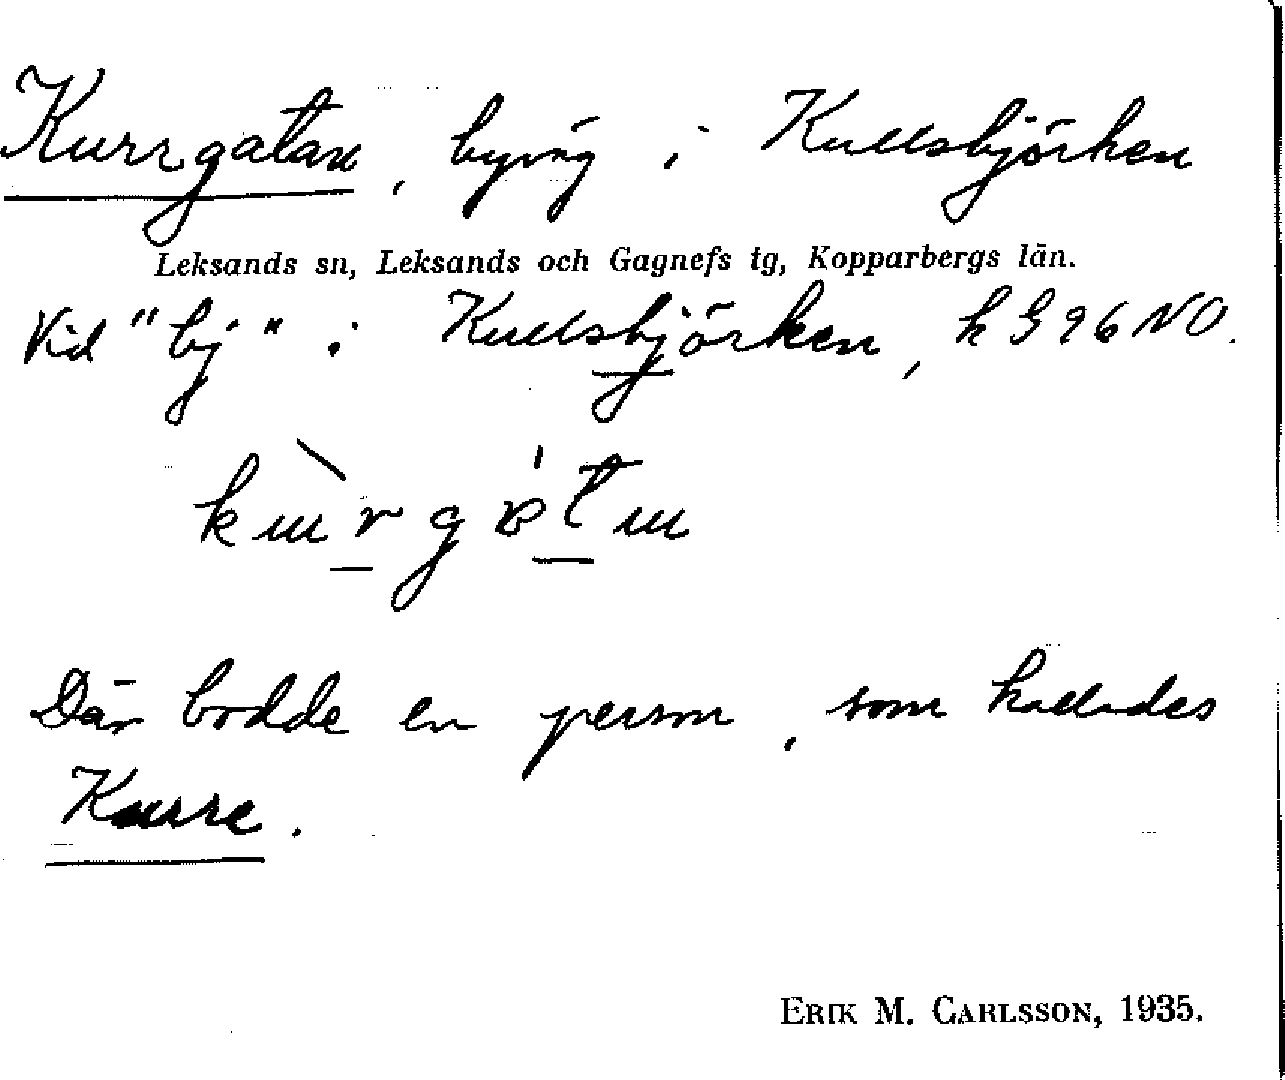 Kurrgatan, byväg i Kullsbjörken
Leksands sn, Leksands och Gagnefs tg, Kopparbergs län.
Vid "bj" i Kullsbjörken, k G 96 NO.
Där bodde en person, som kallades
Kurre.
ERIK M. CARLSSON, 1935.